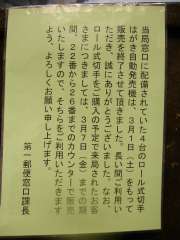 当局窓口に配備されていた4台のロール式切手
はがき自動発売機は、3月1日(土)をもって
販売を終了させて頂きました。長い間ご利用い
ただき、誠にありがとうございました。なお、
ロール式切手をご購入の予定で来局されたお客
さまにつきましては、3月7日(金)までの期
間、22番から26番までのカウンターで販売
いたしますので、そちらをご利用いただきます
よう、よろしくお願い申し上げます。
第一郵便窓口課長